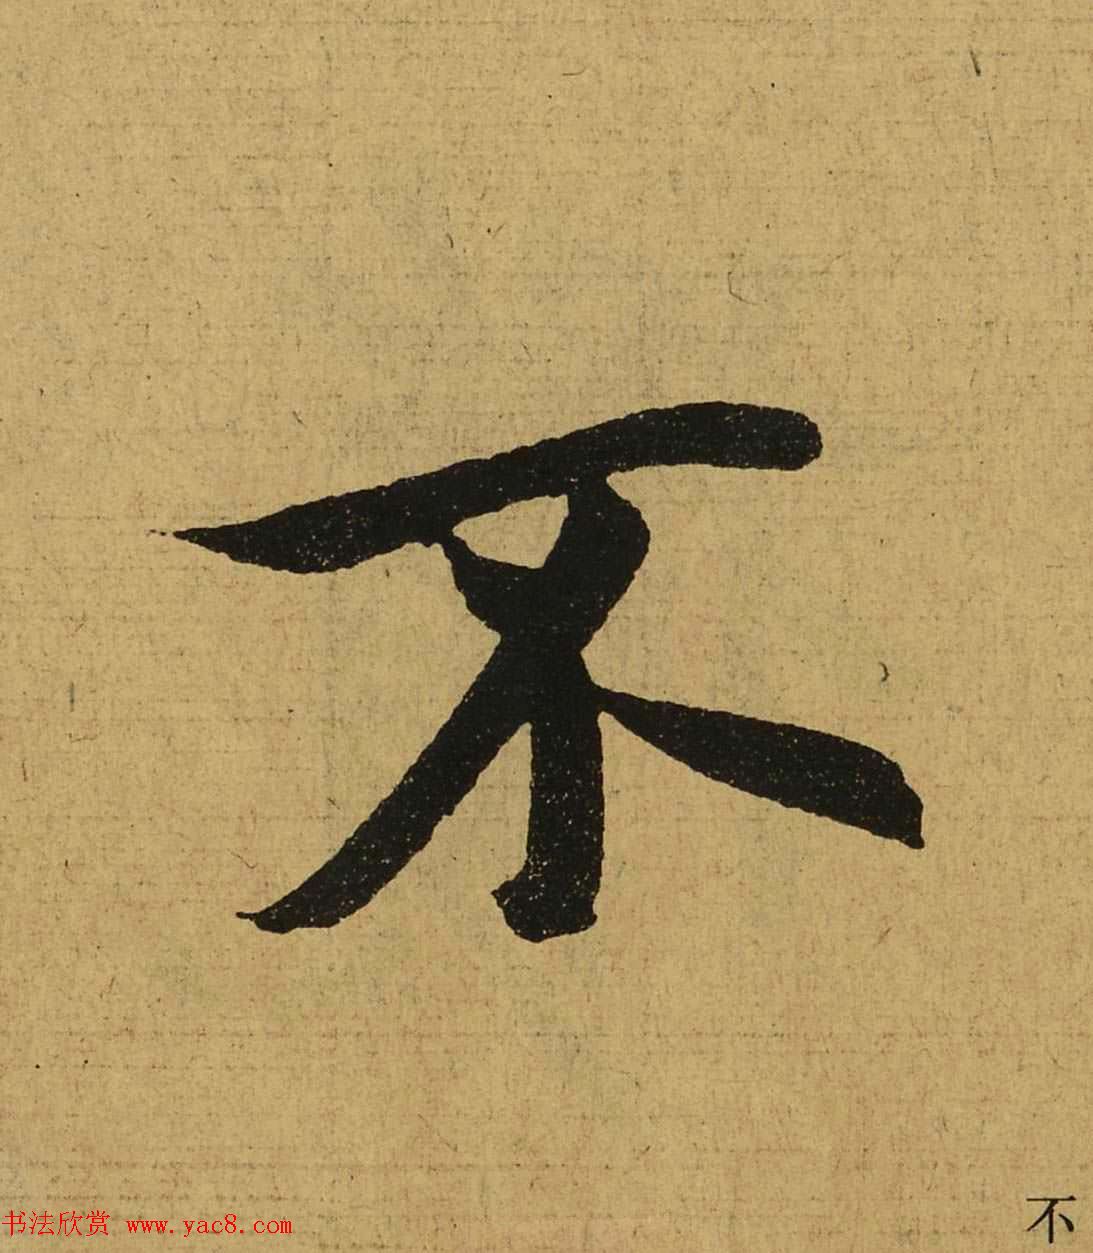 不
不
书法欣赏 www.yac8.com